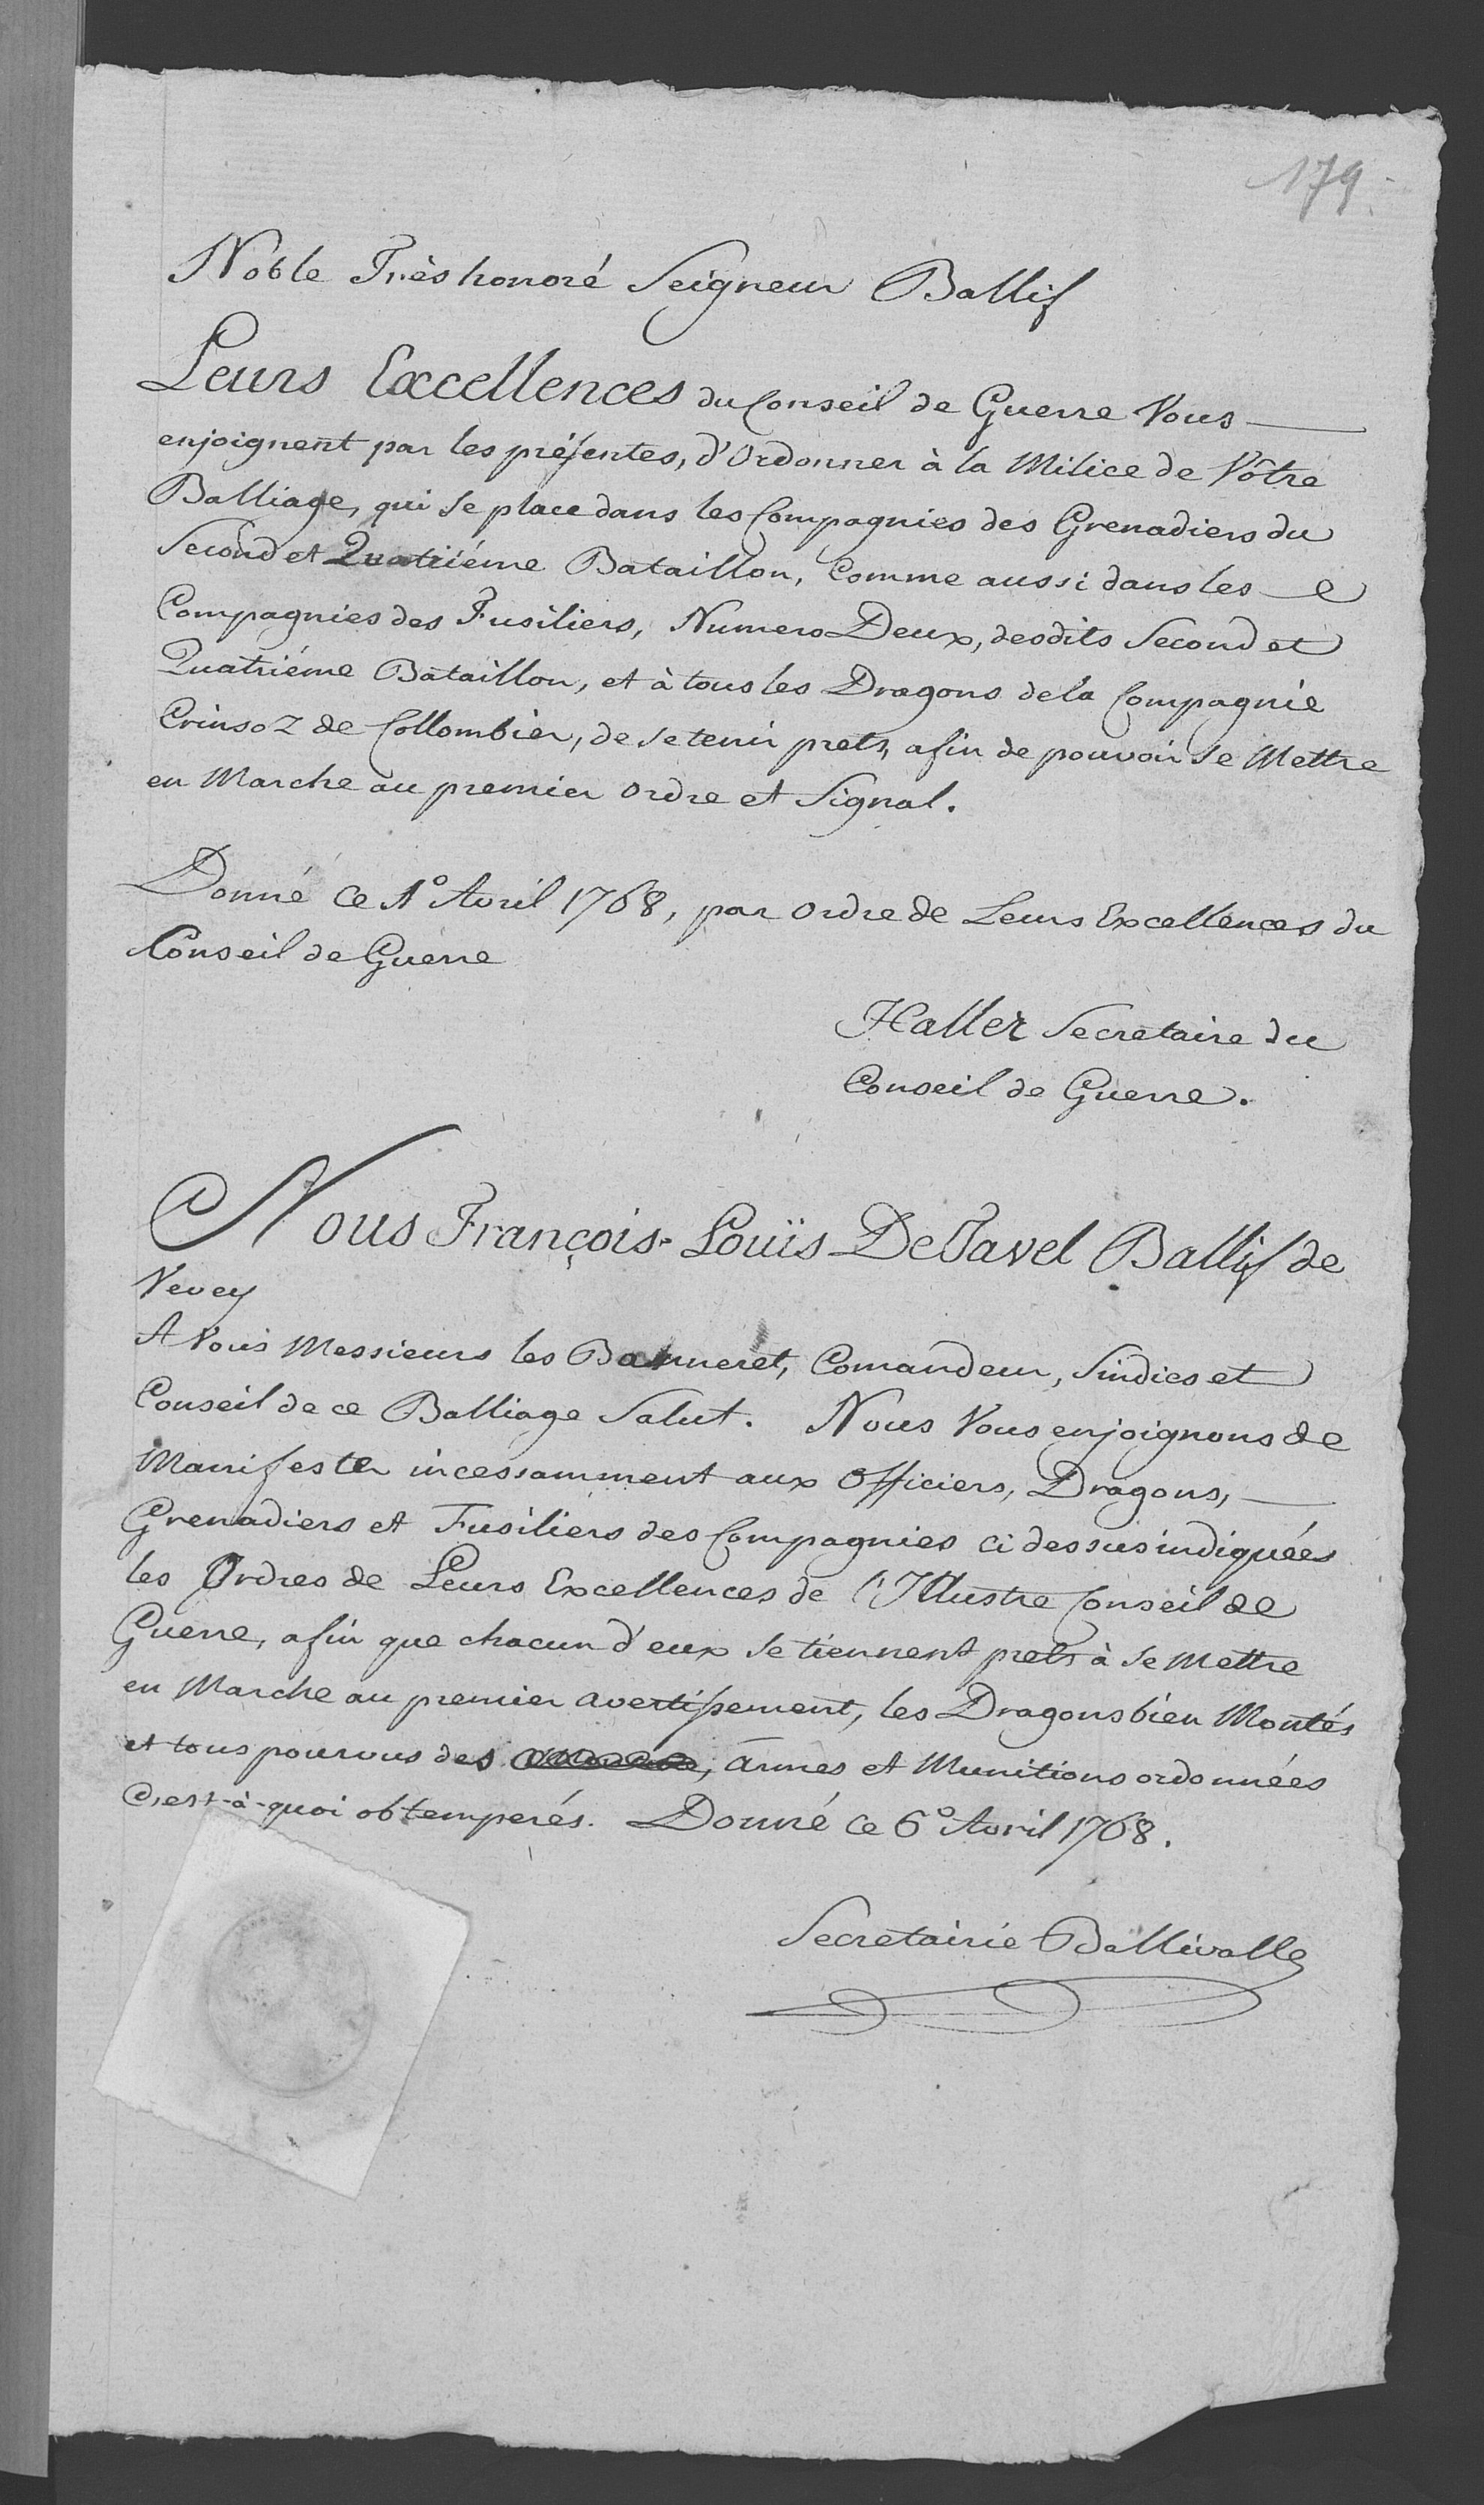 179.
Noble Très honoré Seigneur Ballif
Leurs Excellences du Conseil de Guerre Vous
enjoignent par les présentes, d'Ordonner à la Milice de Vôtre
Balliage, qui se place dans les Compagnies des Grenadiers du
Second et Quatriéme Bataillon, Comme aussi dans les
Compagnies des Fusiliers, Numero Deux, desdits Second et
Quatriéme Bataillon, et à tous les Dragons de la Compagnie
Crinsoz de Collombier, de se tenir prets, afin de pouvoir se Mettre
en Marche au premier Ordre et Signal.
Donné Ce 1° Avril 1768, par Ordre de Leurs Excellences du
Conseil de Guerre
Haller Secretaire du
Conseil de Guerre.
Nous François-Louïs De Tavel Ballif de
Vevey
A Vous Messieurs les Banneret, Comandeur, Sindics et
Conseil de ce Balliage Salut. Nous Vous enjoignons de
Manifester incessamment aux Officiers, Dragons,
Grenadiers et Fusiliers des Compagnies ci dessus indiquées
les Ordres de Leurs Excellences de l'Illustre Conseil de
Guerre, afin que chacun d'eux se tiennent prets à se Mettre
en Marche au premier avertissement, les Dragons bien Montés
et tous pourvus des, armes et Munitions ordonnées
C'est-à-quoi obtemperés. Donné Ce 6° Avril 1768.
Secretairie Ballivalle